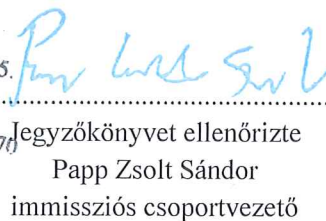 5.
Jegyzőkönyvet ellenőrizte
Papp Zsolt Sándor
immissziós csoportvezető